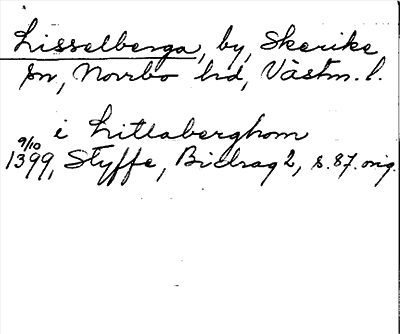 Lisselberga, by, Skerike
sn, Norrbo hd, Västm. l.
i Litlaberghom
9/10
1399, Styffe, Bidrag 2, s. 87. orig.